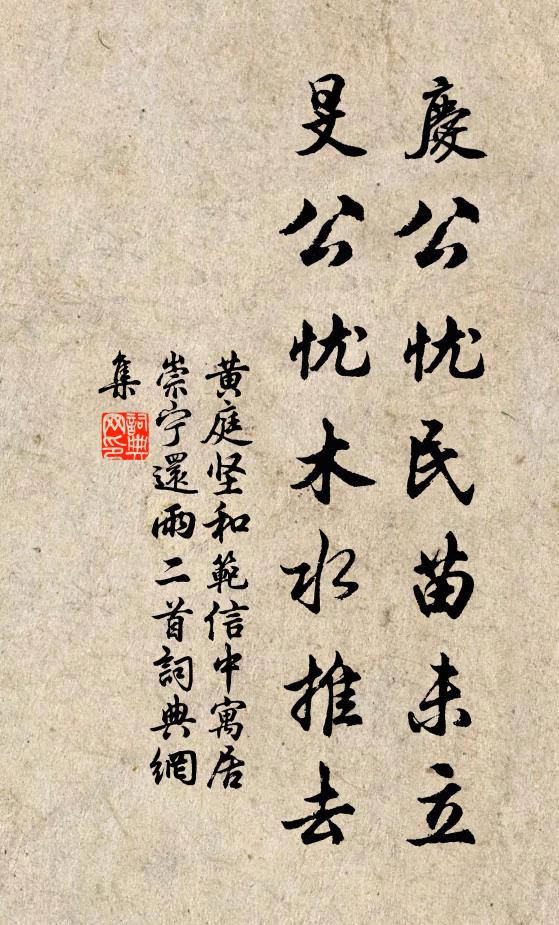 慶公忧民苗未立
旻公忧木水推去
黄庭坚和範信中寓居
崇宁還雨二首詞典網
集
詞典
网印